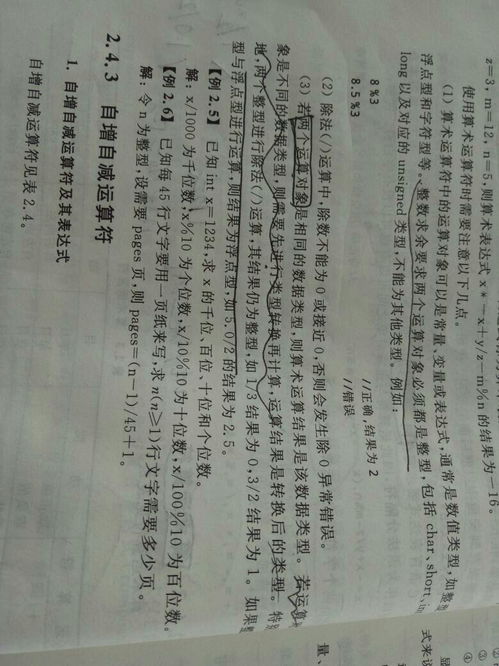 z=3, m=12, n=5,则算术表达式 x*-x+y/z-m%n 的结果为-16。
使用算术运算符时需要注意以下几点。
(1) 算术运算符中的运算对象可以是常量、变量或表达式,通常是数值类型,如整
浮点型和字符型等。整数求余要求两个运算对象必须都是整型,包括 char、short、in
long 以及对应的 unsigned 类型,不能为其他类型。例如:
8%3 //正确,结果为 2
8.5%3 //错误
(2) 除法(/)运算中,除数不能为 0 或接近 0,否则会发生除 0 异常错误。
(3) 若两个运算对象是相同的数据类型,则算术运算结果是该数据类型。若运算
象是不同的数据类型,则需要先进行类型转换再计算,运算结果是转换后的类型。特别
地,两个整型进行除法(/)运算,其结果仍为整型,如 1/3 结果为 0,3/2 结果为 1。如果
型与浮点型进行运算,则结果为浮点型,如 5.0/2 的结果为 2.5。
【例 2.5】 已知 int x=1234,求 x 的千位、百位、十位和个位数。
解:x/1000 为千位数,x%10 为个位数,x/10%10 为十位数,x/100%10 为百位数。
【例 2.6】 已知每 45 行文字要用一页纸来写,求 n(n≥1)行文字需要多少页。
解:令 n 为整型,设需要 pages 页,则 pages=(n-1)/45+1。
2.4.3 自增自减运算符
1. 自增自减运算符及其表达式
自增自减运算符见表 2.4。
③
④
式来说
量、